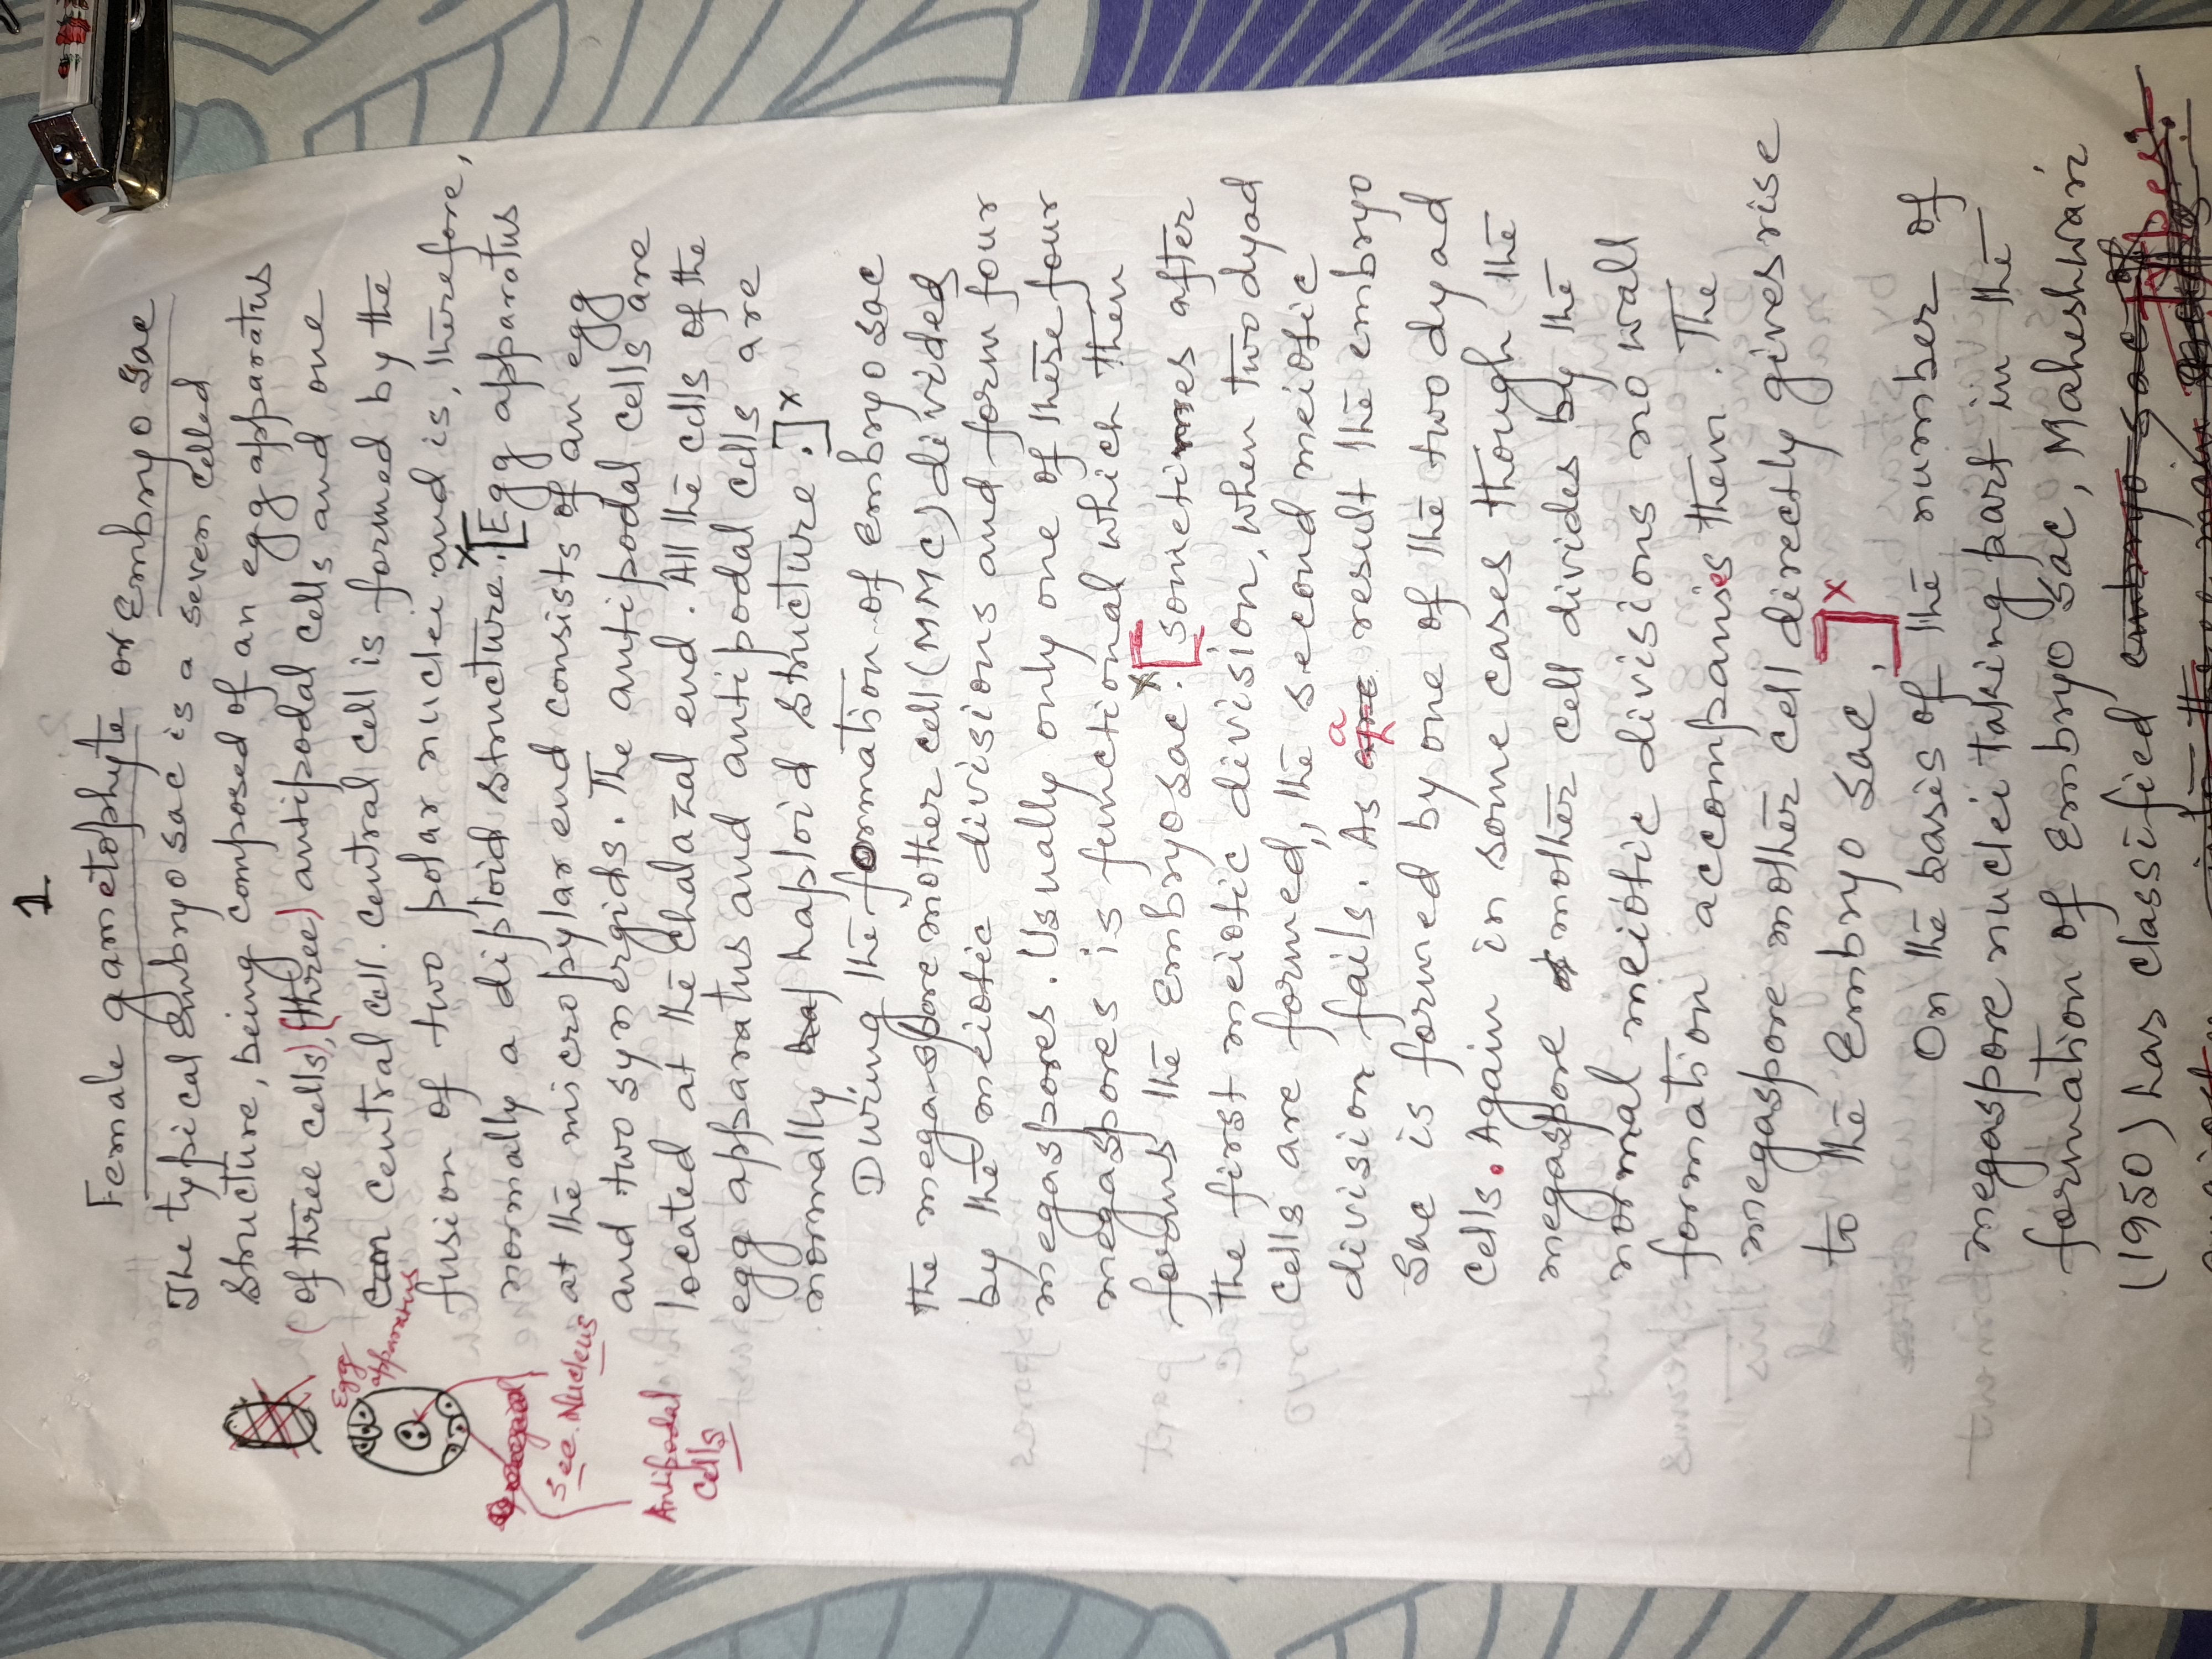 1.
Female gametophyte or Embryo Sac
The typical Embryo sac is a seven celled
structure, being composed of an egg apparatus
of three cells, (three) antipodal cells and one
central cell. central cell is formed by the
fusion of two polar nuclei and is, therefore,
normally a diploid structure. [Egg apparatus
at the micropylar end consists of an egg
and two synergids. The antipodal cells are
located at the chalazal end. All the cells of the
egg apparatus and antipodal cells are
normally haploid structure.] x
During the formation of embryo sac
the megaspore mother cell (MMC) divided
by the meiotic divisions and form four
megaspores. Usually only one of these four
megaspores is functional which then
forms the Embryo sac. x [sometimes after
the first meiotic division, when two dyad
cells are formed, the second meiotic
division fails. As a result the embryo
sac is formed by one of the two dyad
cells. Again in some cases though the
megaspore mother cell divides by the
normal meiotic divisions no wall
formation accompanies them. The
megaspore mother cell directly gives rise
to the Embryo sac.] x
On the basis of the number of
megaspore nuclei taking part in the
formation of Embryo sac, Maheshwari
(1950) has classified embryo sac of
types.
Egg
apparatus
Sec. Nucleus
Antipodal
cells